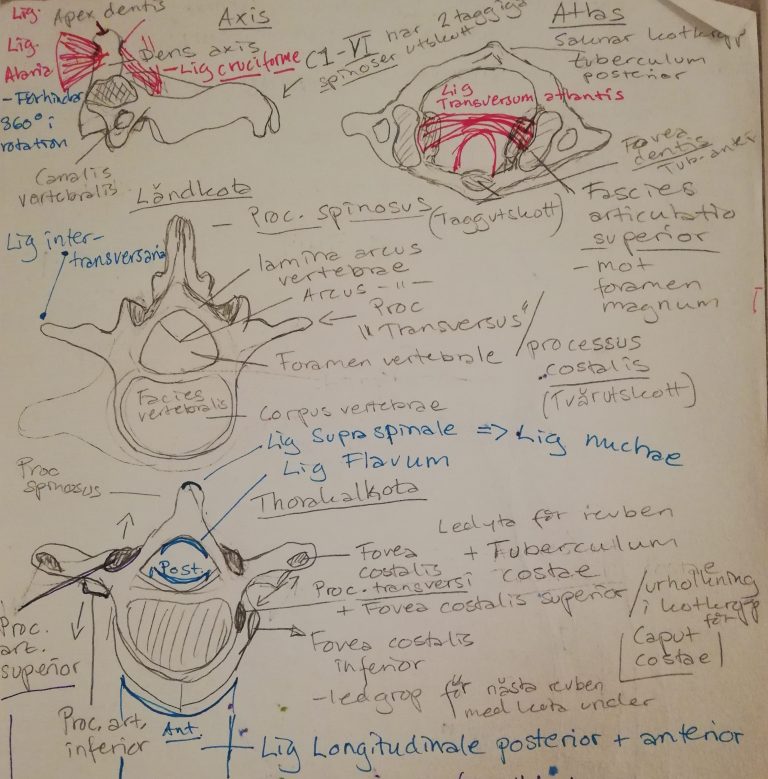 Lig.
Apex dentis
Lig.
Alaria
- Förhindar
360° i
rotation
Axis
Dens axis
- Lig cruciforme
C1-VI har 2 taggiga
spinoser utskott
Canalis
vertebralis
Atlas
Saknar kotkropp
tuberculum
posterior
Lig
Transversum atlantis
Fovea
dentis
Fascies
articulatio
superior
- mot
foramen
magnum
Ländkota
Proc. spinosus (Taggutskott)
Lig inter-
transversaria
lamina arcus
vertebrae
Arcus -"-
Proc
"Transversus" /
processus
costalis
(Tvärutskott)
Foramen vertebrale
Facies
vertebralis
Corpus vertebrae
Lig Supraspinale => Lig nuchae
Lig Flavum
Thorakalkota
Proc
spinosus
Post.
Ledyta för revben
+ Tuberculum
costae
Fovea
costalis
Proc. transversi
+ Fovea costalis superior /
urholkning
i kotkropp
för
Caput
costae
Fovea costalis
inferior
- ledgrop för nästa revben
med kota under
Proc.
art.
superior
Proc. art.
inferior
Ant.
Lig Longitudinale posterior + anterior